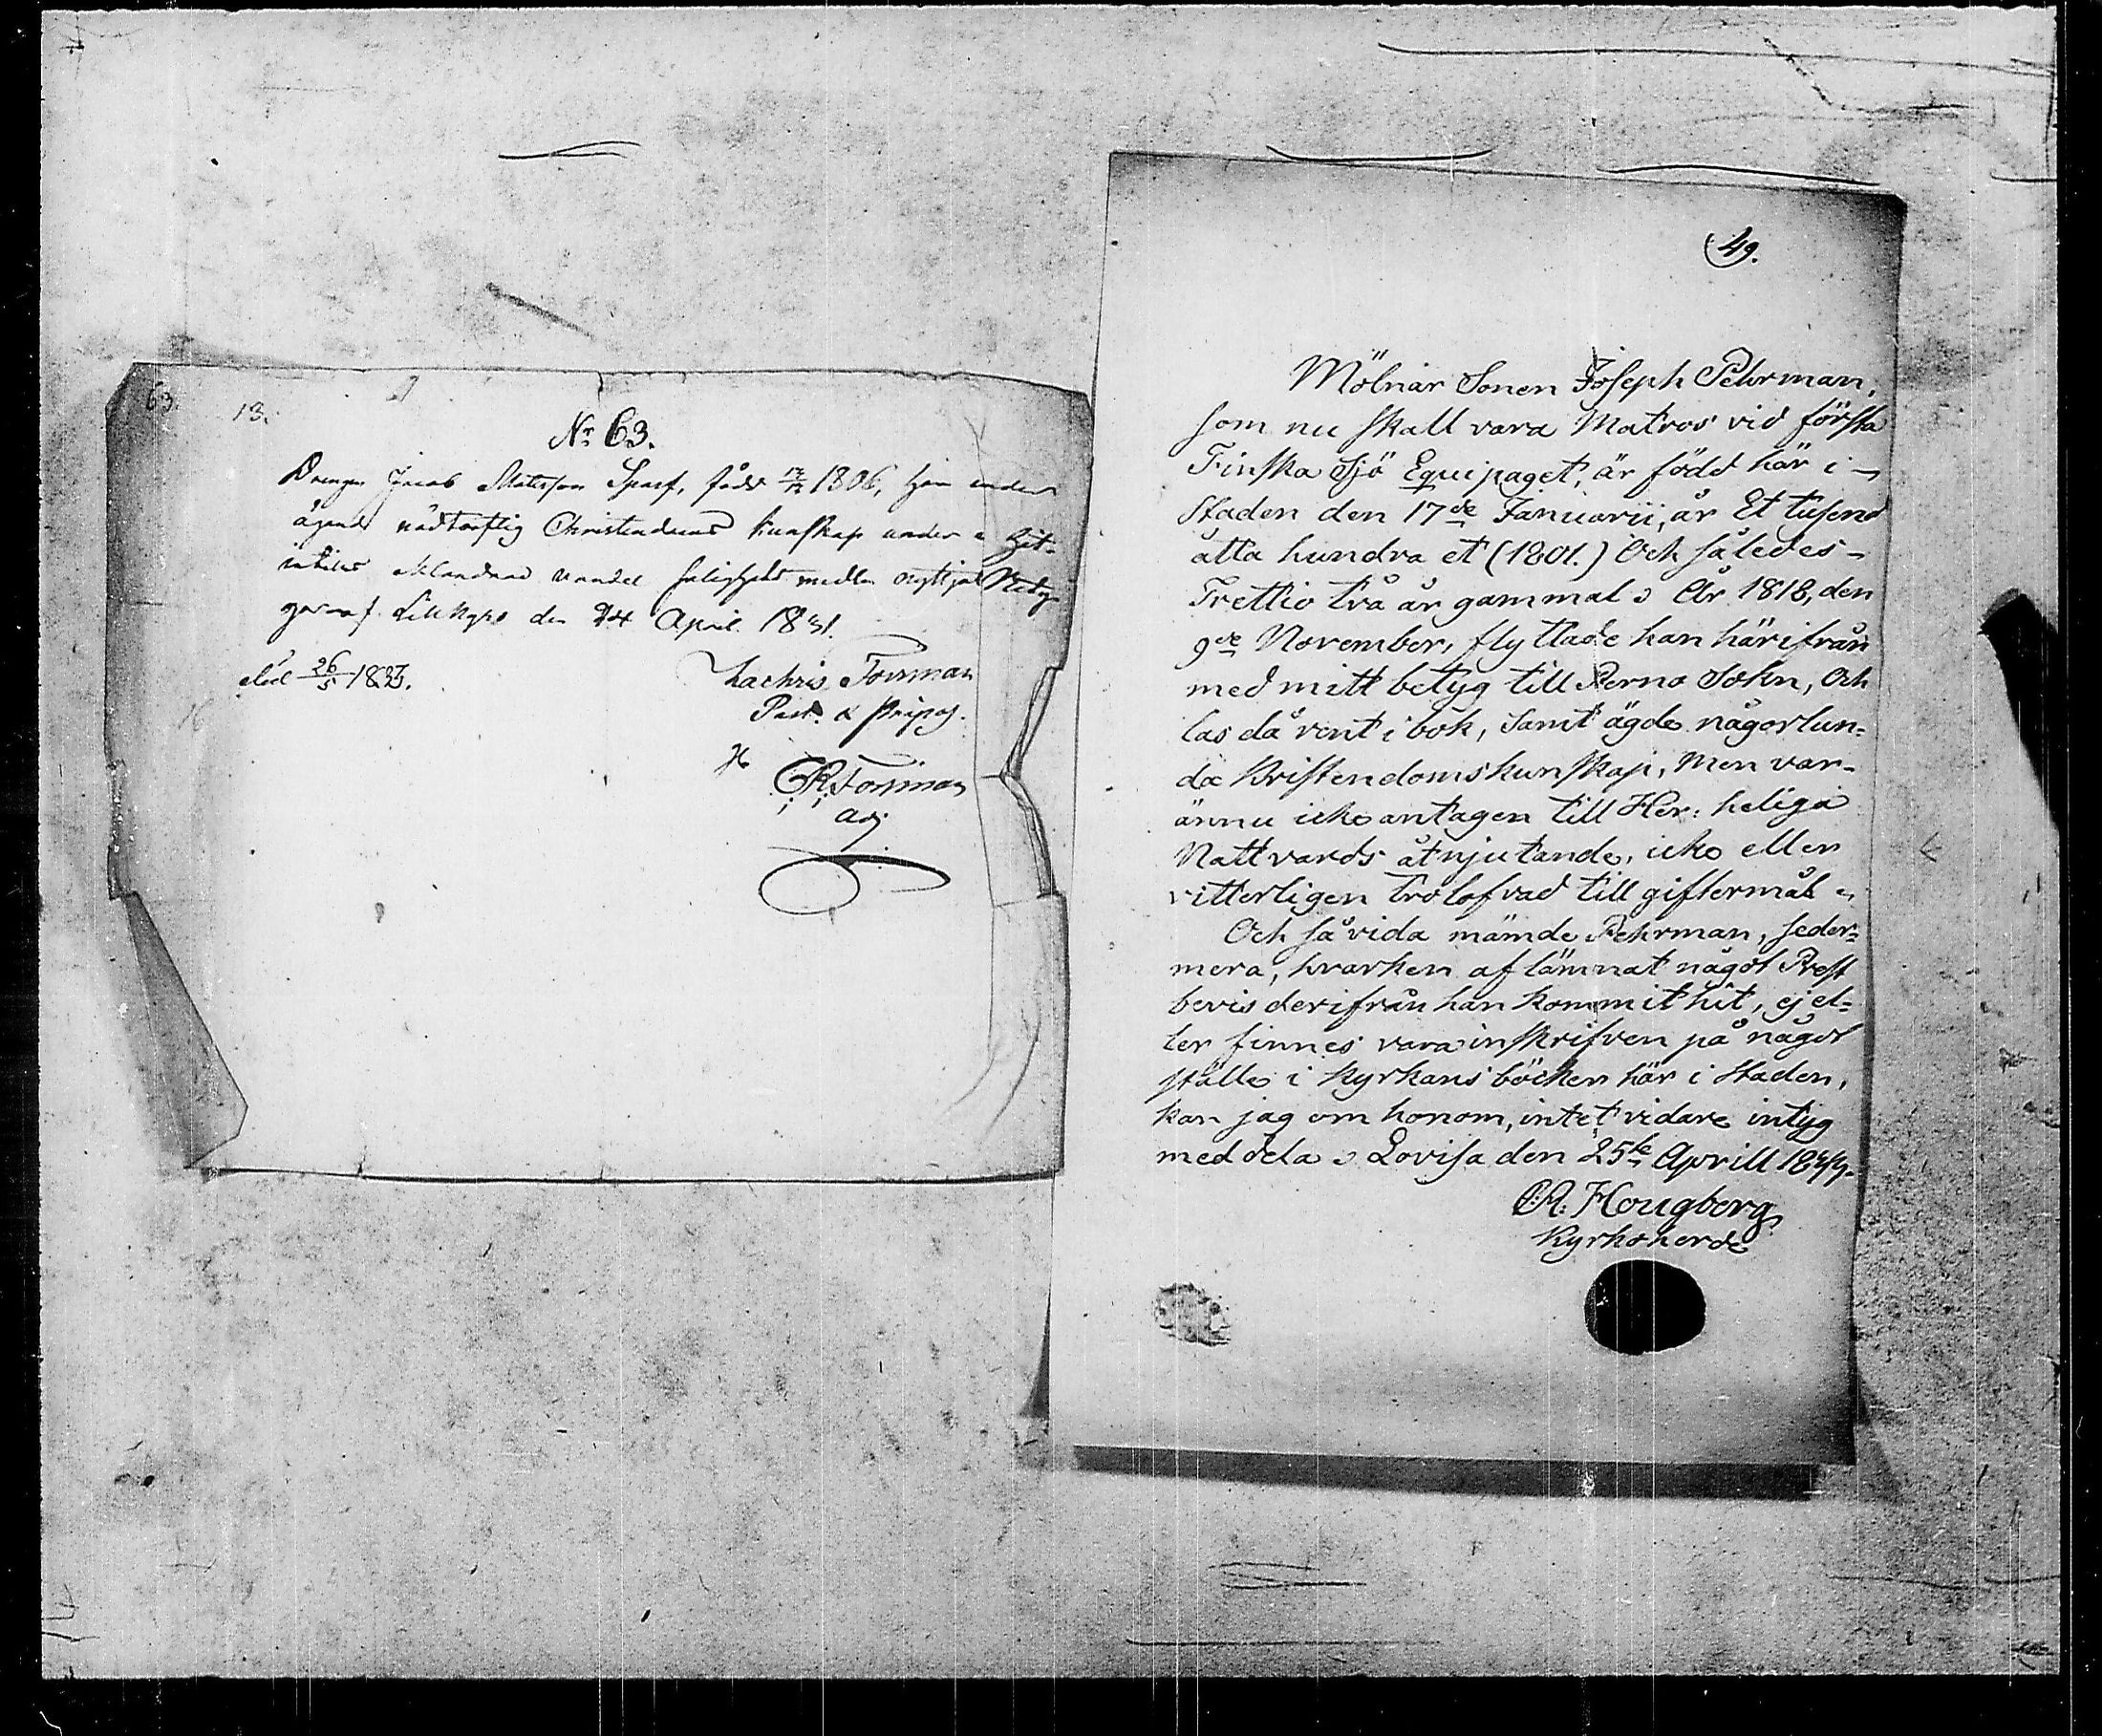 63.
13.
No 63.
Drengen Jacob Matsson Sparf, född 1806, har under
ägand nödtorftig Christendoms kunskap under
vandel salighets medlen nyttjat
Lillkyro den 24 April 1831.
död 26/5 1833.
Zachris Forsman
Past. & Præpos.
CR Forsman
Adj
49.
Mölnar Sonen Joseph Pehrman,
som nu skall vara Matros vid första
Finska Sjö Equipaget, är född här i
Staden den 17de Januarii, år Et tusend
åtta hundra et (1801.) Och således
Trettio två år gammal. År 1818, den
9de November, flyttade han härifrån
med mitt betyg till Perno Sokn, Och
las då rent i bok, samt ägde någorlun-
da Kristendomskunskap, Men var
ännu icke antagen till Her: heliga
Nattvards åtnjutande, icke eller
vitterligen trolofvad till giftermål
Och såvida nämde Pehrman, seder-
mera, hvarken aflämnat något Prest
bevis derifrån han kommit hit, ej el-
ler finnes vara inskrifven på något
ställe i Kyrkans böcker här i staden,
kan jag om honom, intet vidare intyg
meddela. Lovisa den 25te Aprill
Hougberg
Kyrkoherde